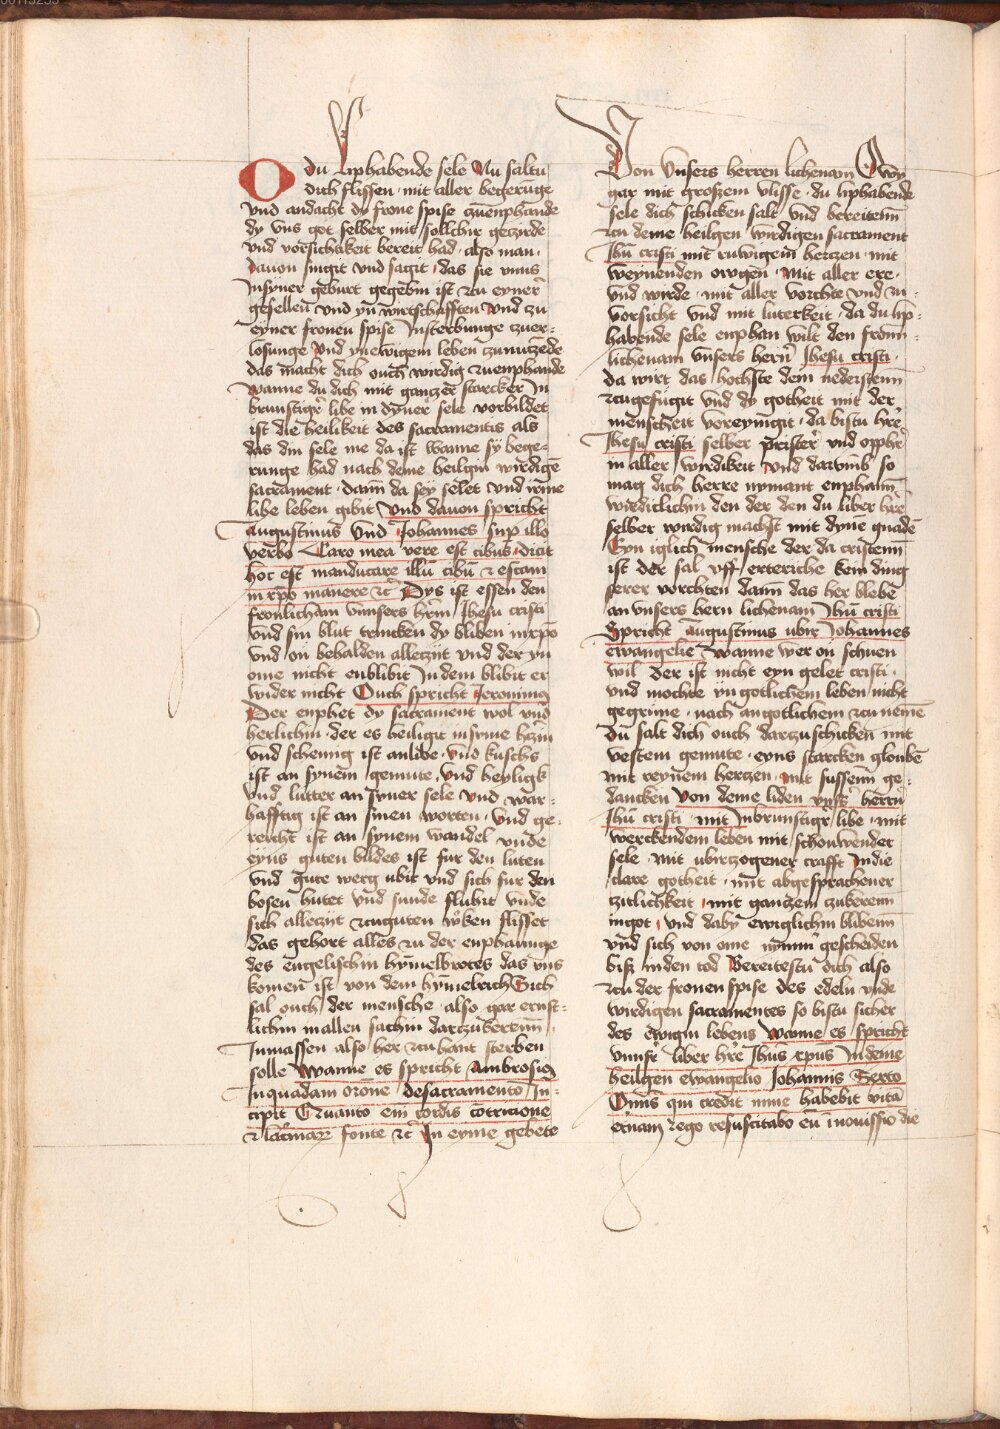 O du liphabende sele Nu saltu
dich flissen · mit aller begerūge
vnd andacht dy frone spise zuenphande
dy vns got selber mit sollchir gezirde
vnd vorsichtikeit bereit had · also man ·
dauon singit vnd sagit · das sie vnns
Insyner geburt gegebin ist zu eyner
gesellen vnd yn wirtschafften Vnd zu
eyner fronen spise Insterbunge zuer-
losunge Vnd ynewigem leben zunutzēde
das macht dich ouch wirdig zuenphande
Wanne du dich mit gantzer starcker In
brunstigr libe in dyner sele vorbildet
ist die heilikeit des sacramentis als
das din sele me da ist wanne sy bege-
runge had nach deme heilgin wirdigē
sacrament · dann da sey selet vnd irme
libe leben gibit Vnd dauon spricht
Augustinus Vnd Johannes sup illo
verbo Caro mea vere est cibus · dicit
hoc est manducare illū cibū & escam
in xpo manere &c̄ Dys ist essen den
fronlicham vnnsers hern̄ Jhesu cristi
vnd sin blut trincken dy bliben inxpō
vnd on behalden alleczijt vnd der yn
ome nicht enblibit In dem blibit er
wider nicht Ouch spricht Jeronimus
Der enphet dy sacrament wol vnd
herlichin · der es heiligit insyme hertzin
vnd schemig ist anlibe · Vnd kuschs
ist an synem gemute · Vnd heyligk
vnd lutter an syner sele Vnd war-
hafftig ist an sinen worten · Vnd ge-
rercht ist an synem wandel vnde
eyns guten bildes ist fur den luten
vnd gute werg ubit vnd sich fur den
bosen hutet vnd sunde fluhit vnde
sich alleczijt zcuguten wken flisset
das gehort alles zu der enphaunge
des engelischin hymmelbrotes das vns
komen ist von dem hymelrich Sich
sal ouch der mensche also gar ernst-
lichin inallen sachin dartzuberenn ·
Inmassen also her zcuhant sterben
solle Wanne es spricht Ambrosius
Inquadam orōne desacramento In-
cipit Quanto cm̄ cordis cōtricione
& lacrimarū fonte &c̄ In eyme gebete
Von Vnsers herren lichenam O wy
gar mit groszem vlisse · du liphabende
sele dich schicken salt vnd bereitenn
zu deme heilgen wirdigen sacrament
Jhū cristi mit ruwigem hertzen · mit
weynenden owgen · Mit aller ere ·
vnd wirde · mit aller vorchte vnd vn-
vorsicht vnd mit luterkeit · da du lip-
habende sele enphan wilt den fronn-
lichenam vnsers hern̄ Jhesu cristi ·
da wirt das hochste dem nederstenn
zcugefugit vnd dy gotheit mit der
menscheit voreynigit · da bistu hre
Jhesu cristi selber prister vnd opphr
in aller wirdikeit Vnd darvmb so
mag dich herre nymant enphann
wirdiclichin den der den du liber hre
selber wirdig machst mit dyne gnadē
Eyn iglich mensche der da cristenn
ist der sal vff ertteriche kein ding
serer vorchten dann das her blebe
an vnsers hern lichenam Jhū cristi
Spricht Augustinus ubir Johannes
ewangelie Wanne wer on schuen
wil der ist nicht eyn gelet cristi ·
vnd mochte yn gotlichem leben nicht
gegrune · nach angotlichem zcunemē
Du salt dich ouch dartzuschicken mit
vestem gemute · eyns starcken gloubē
mit reynem hertzen · Mit sussenn ge-
dancken Von deme liden vnsr herrn
Jhū cristi mit Inbrunstigr libe · mit
werckendem leben mit schouwender
sele · mit ubirtzogener crafft In die
clare gotheit · mit abgesprachener
zitlichkeit · mit gantzem zukerenn
ingot · vnd daby ewiglichin blibenn
vnd sich von ome nymm gescheiden
bisz inden tod Bereitestu dich also
zcu der fronen spise des edeln vnde
wirdigen sacramentes so bistu sicher
des Ewigin lebens Wanne es spricht
vnnsr liber hre Jhūs xpus In deme
heilgen ewangelio Johannis Sexto
Omīs qui credit inme habebit vitā
etnam & ego resuscitabo eū inouissīo die